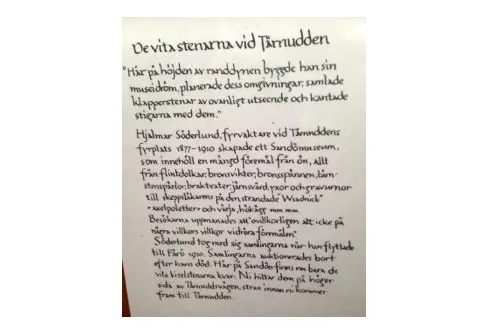 De vita stenarna vid Tärnudden
"Här på höjden av randdynen byggde han sin
museidröm, planerade dess omgivningar, samlade
klapperstenar av ovanligt utseende och kantade
stigarna med dem."
Hjalmar Söderlund, fyrvaktare vid Tärnuddens
fyrplats 1877-1910 skapade ett Sandömuseum,
som innehöll en mängd föremål från ön, allt
från flintdolkar, bronsvikter, bronsspännen, bärn-
stenspärlor, brakteater, järnsvärd, yxor och gravurnor
till skeppsläkarens på den strandade "Wsadnick"
"axelpoletter" och värja, hökägg mm mm.
Besökarna uppmanades att "ovillkorligen att icke på
några villkors villkor vidröra föremålen"
Söderlund tog med sig samlingarna när han flyttade
till Fårö 1910. Samlingarna auktionerades bort
efter hans död. Här på Sandön finns nu bara de
vita kiselstenarna kvar. Ni hittar dem på höger
sida av Tärnuddsvägen, strax innan ni kommer
fram till Tärnudden.